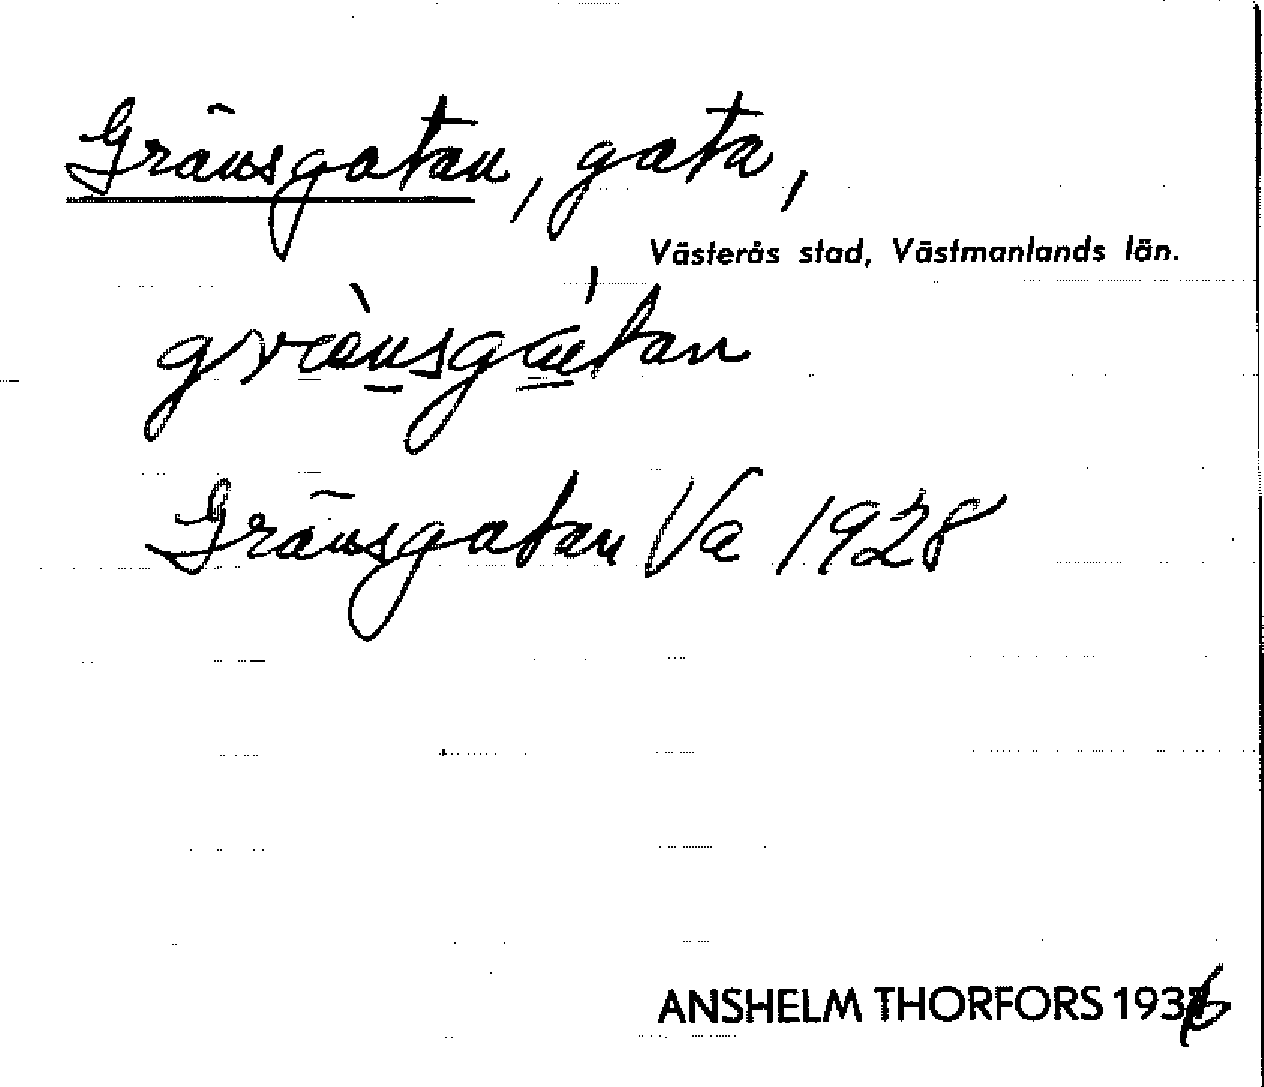 Gränsgatan, gata,
Västerås stad, Västmanlands län.
græ̀nsgátan
Gränsgatan Va 1928
ANSHELM THORFORS 1936